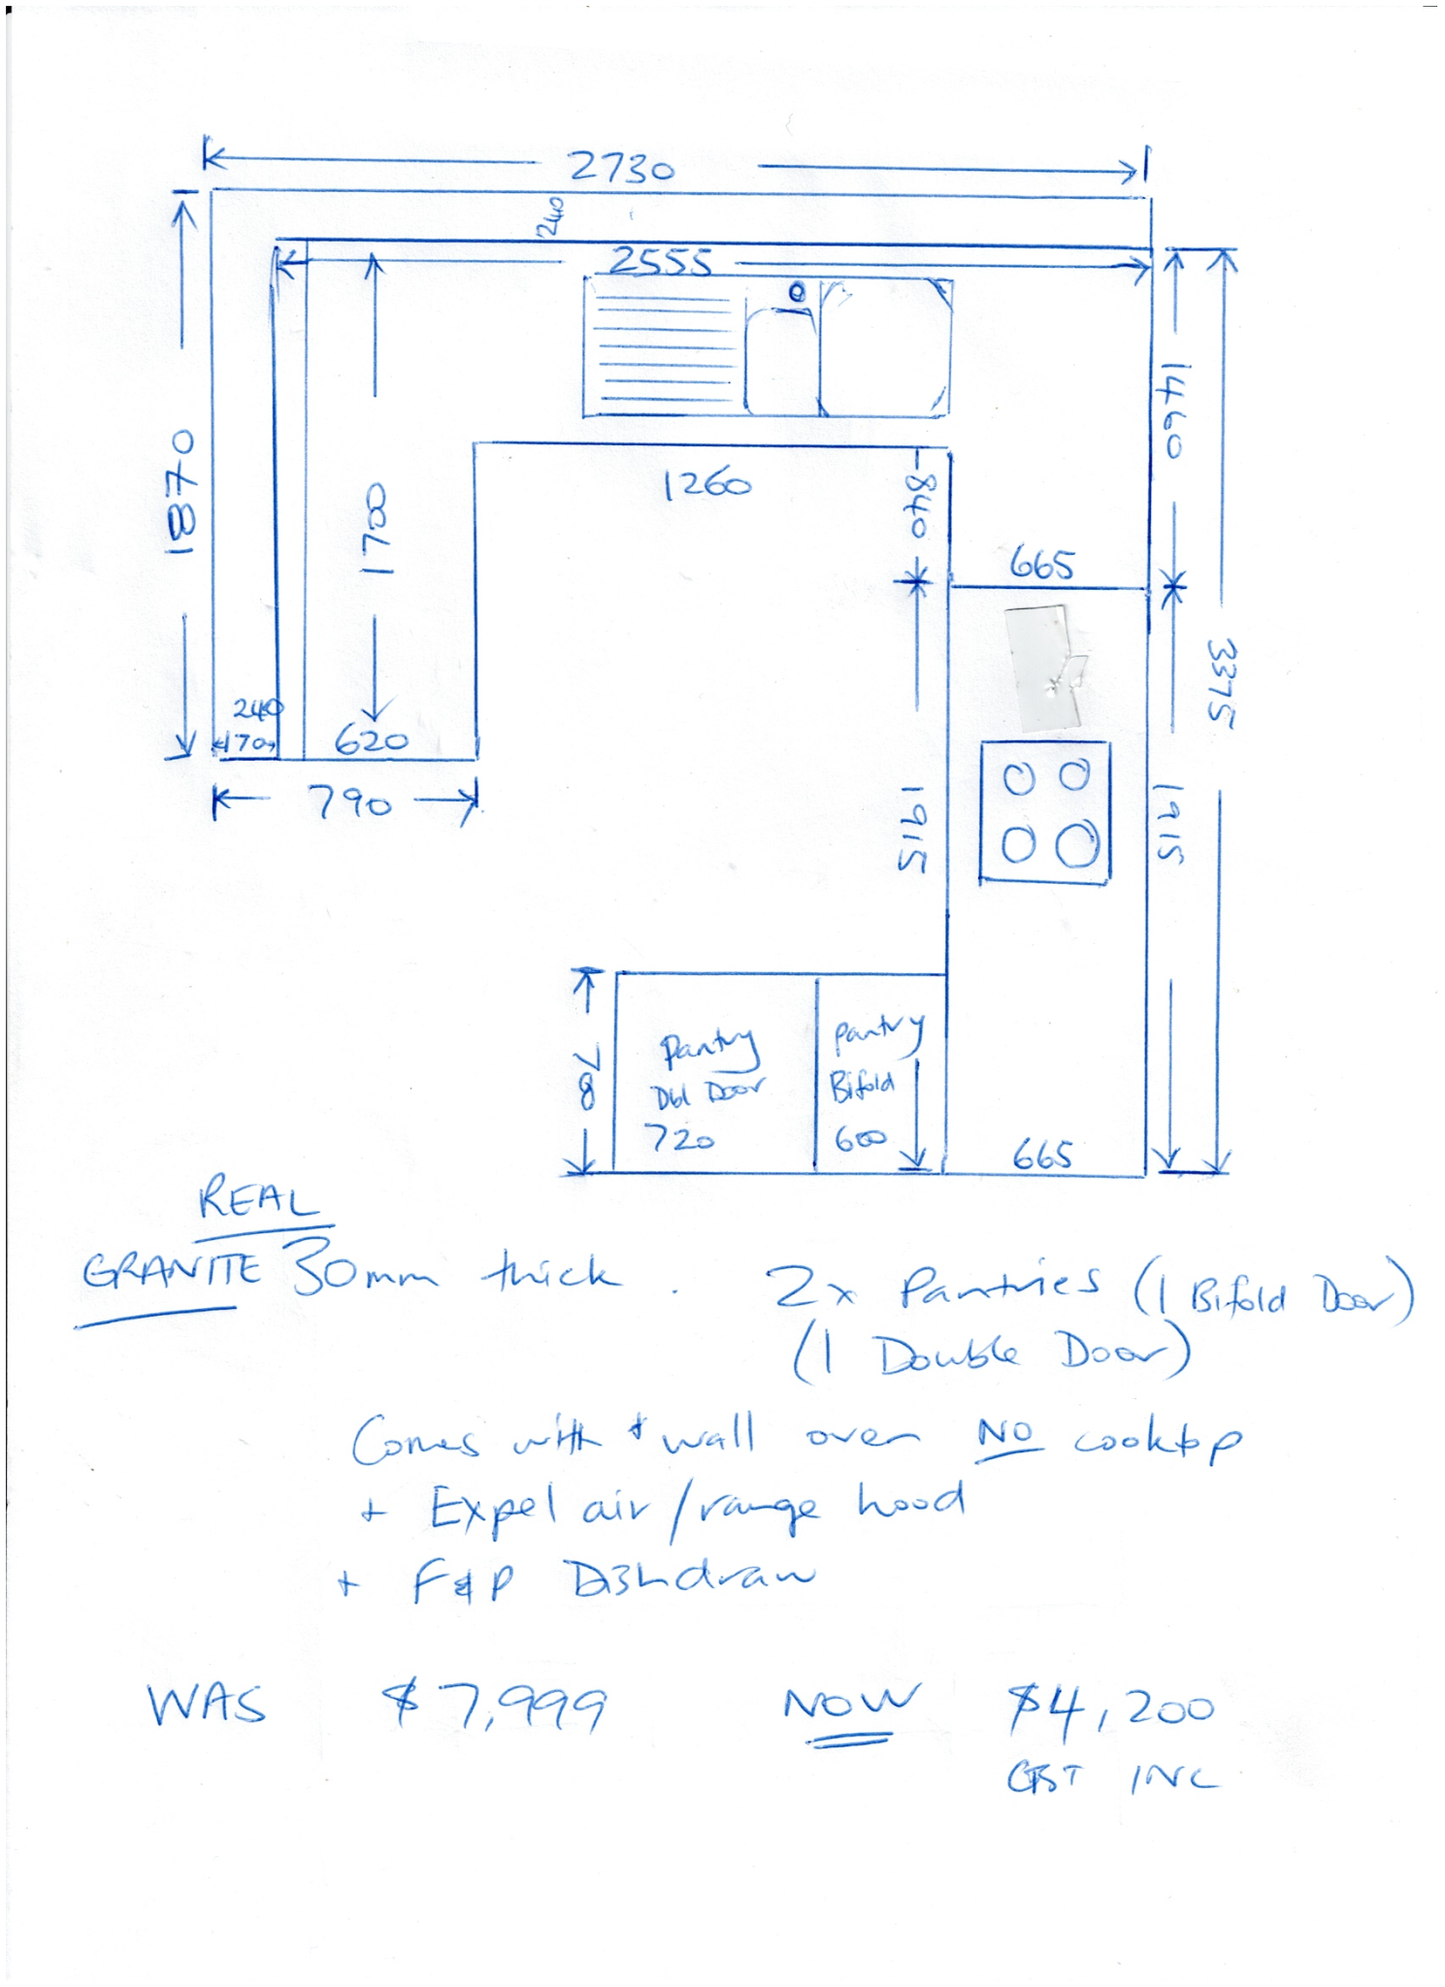 2730
240
2555
1870
1700
1460
1260
840
665
3375
240
170
620
790
1915
1915
Pantry
Dbl Door
720
Pantry
Bifold
600
665
REAL
GRANITE 30mm thick. 2x Pantries (1 Bifold Door)
(1 Double Door)
Comes with + wall oven NO cooktop
+ Expel air/range hood
+ F&P Dishdraw
WAS $7,999 NOW $4,200
GST INC